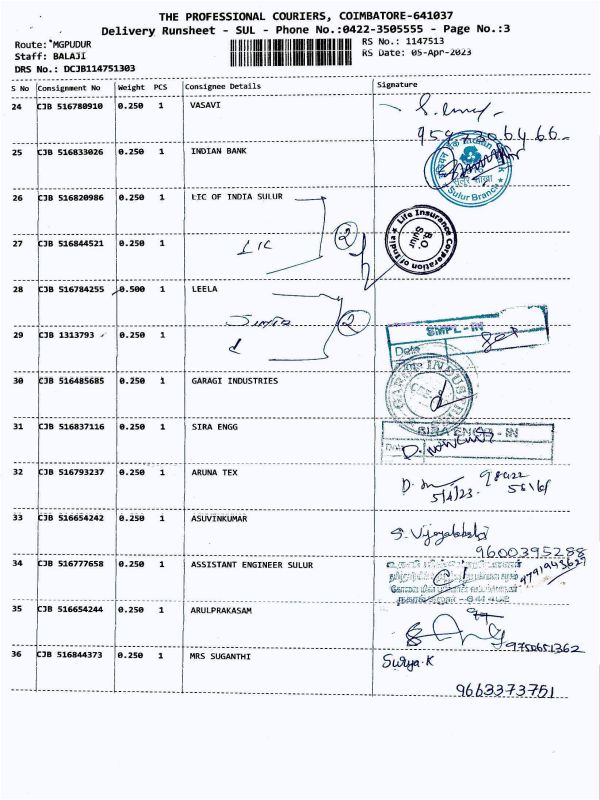 THE PROFESSIONAL COURIERS, COIMBATORE-641037
Delivery Runsheet - SUL - Phone No.:0422-3505555 - Page No.:3
Route: MGPUDUR
RS No.: 1147513
Staff: BALAJI
RS Date: 05-Apr-2023
DRS No.: DCJB114751303
S No Consignment No Weight PCS Consignee Details Signature
24 CJB 516780910 0.250 1 VASAVI
25 CJB 516833026 0.250 1 INDIAN BANK
Sulur Branch
26 CJB 516820986 0.250 1 LIC OF INDIA SULUR
2
Life Insurance Corporation of India
B.O. Sulur
27 CJB 516844521 0.250 1
LIC
28 CJB 516784255 0.500 1 LEELA
2
SMPL - IN
Date
29 CJB 1313793 0.250 1
30 CJB 516485685 0.250 1 GARAGI INDUSTRIES
31 CJB 516837116 0.250 1 SIRA ENGG
32 CJB 516793237 0.250 1 ARUNA TEX
5/4/23
33 CJB 516654242 0.250 1 ASUVINKUMAR
S. Vijayalakshmi
9600395288
34 CJB 516777658 0.250 1 ASSISTANT ENGINEER SULUR
35 CJB 516654244 0.250 1 ARULPRAKASAM
9750651362
36 CJB 516844373 0.250 1 MRS SUGANTHI Surya.K
9663373751